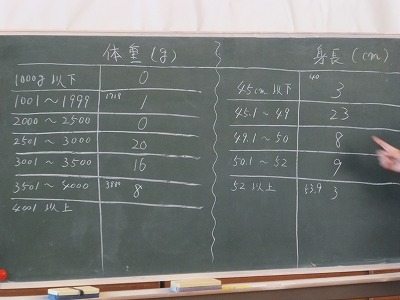 体重 (g)
1000g 以下 0
1001～1999 1718 1
2000～2500 0
2501～3000 20
3001～3500 16
3501～4000 3880 8
4001 以上
身長 (cm)
45cm 以下 40 3
45.1～49 23
49.1～50 8
50.1～52 9
52 以上 53.9 3